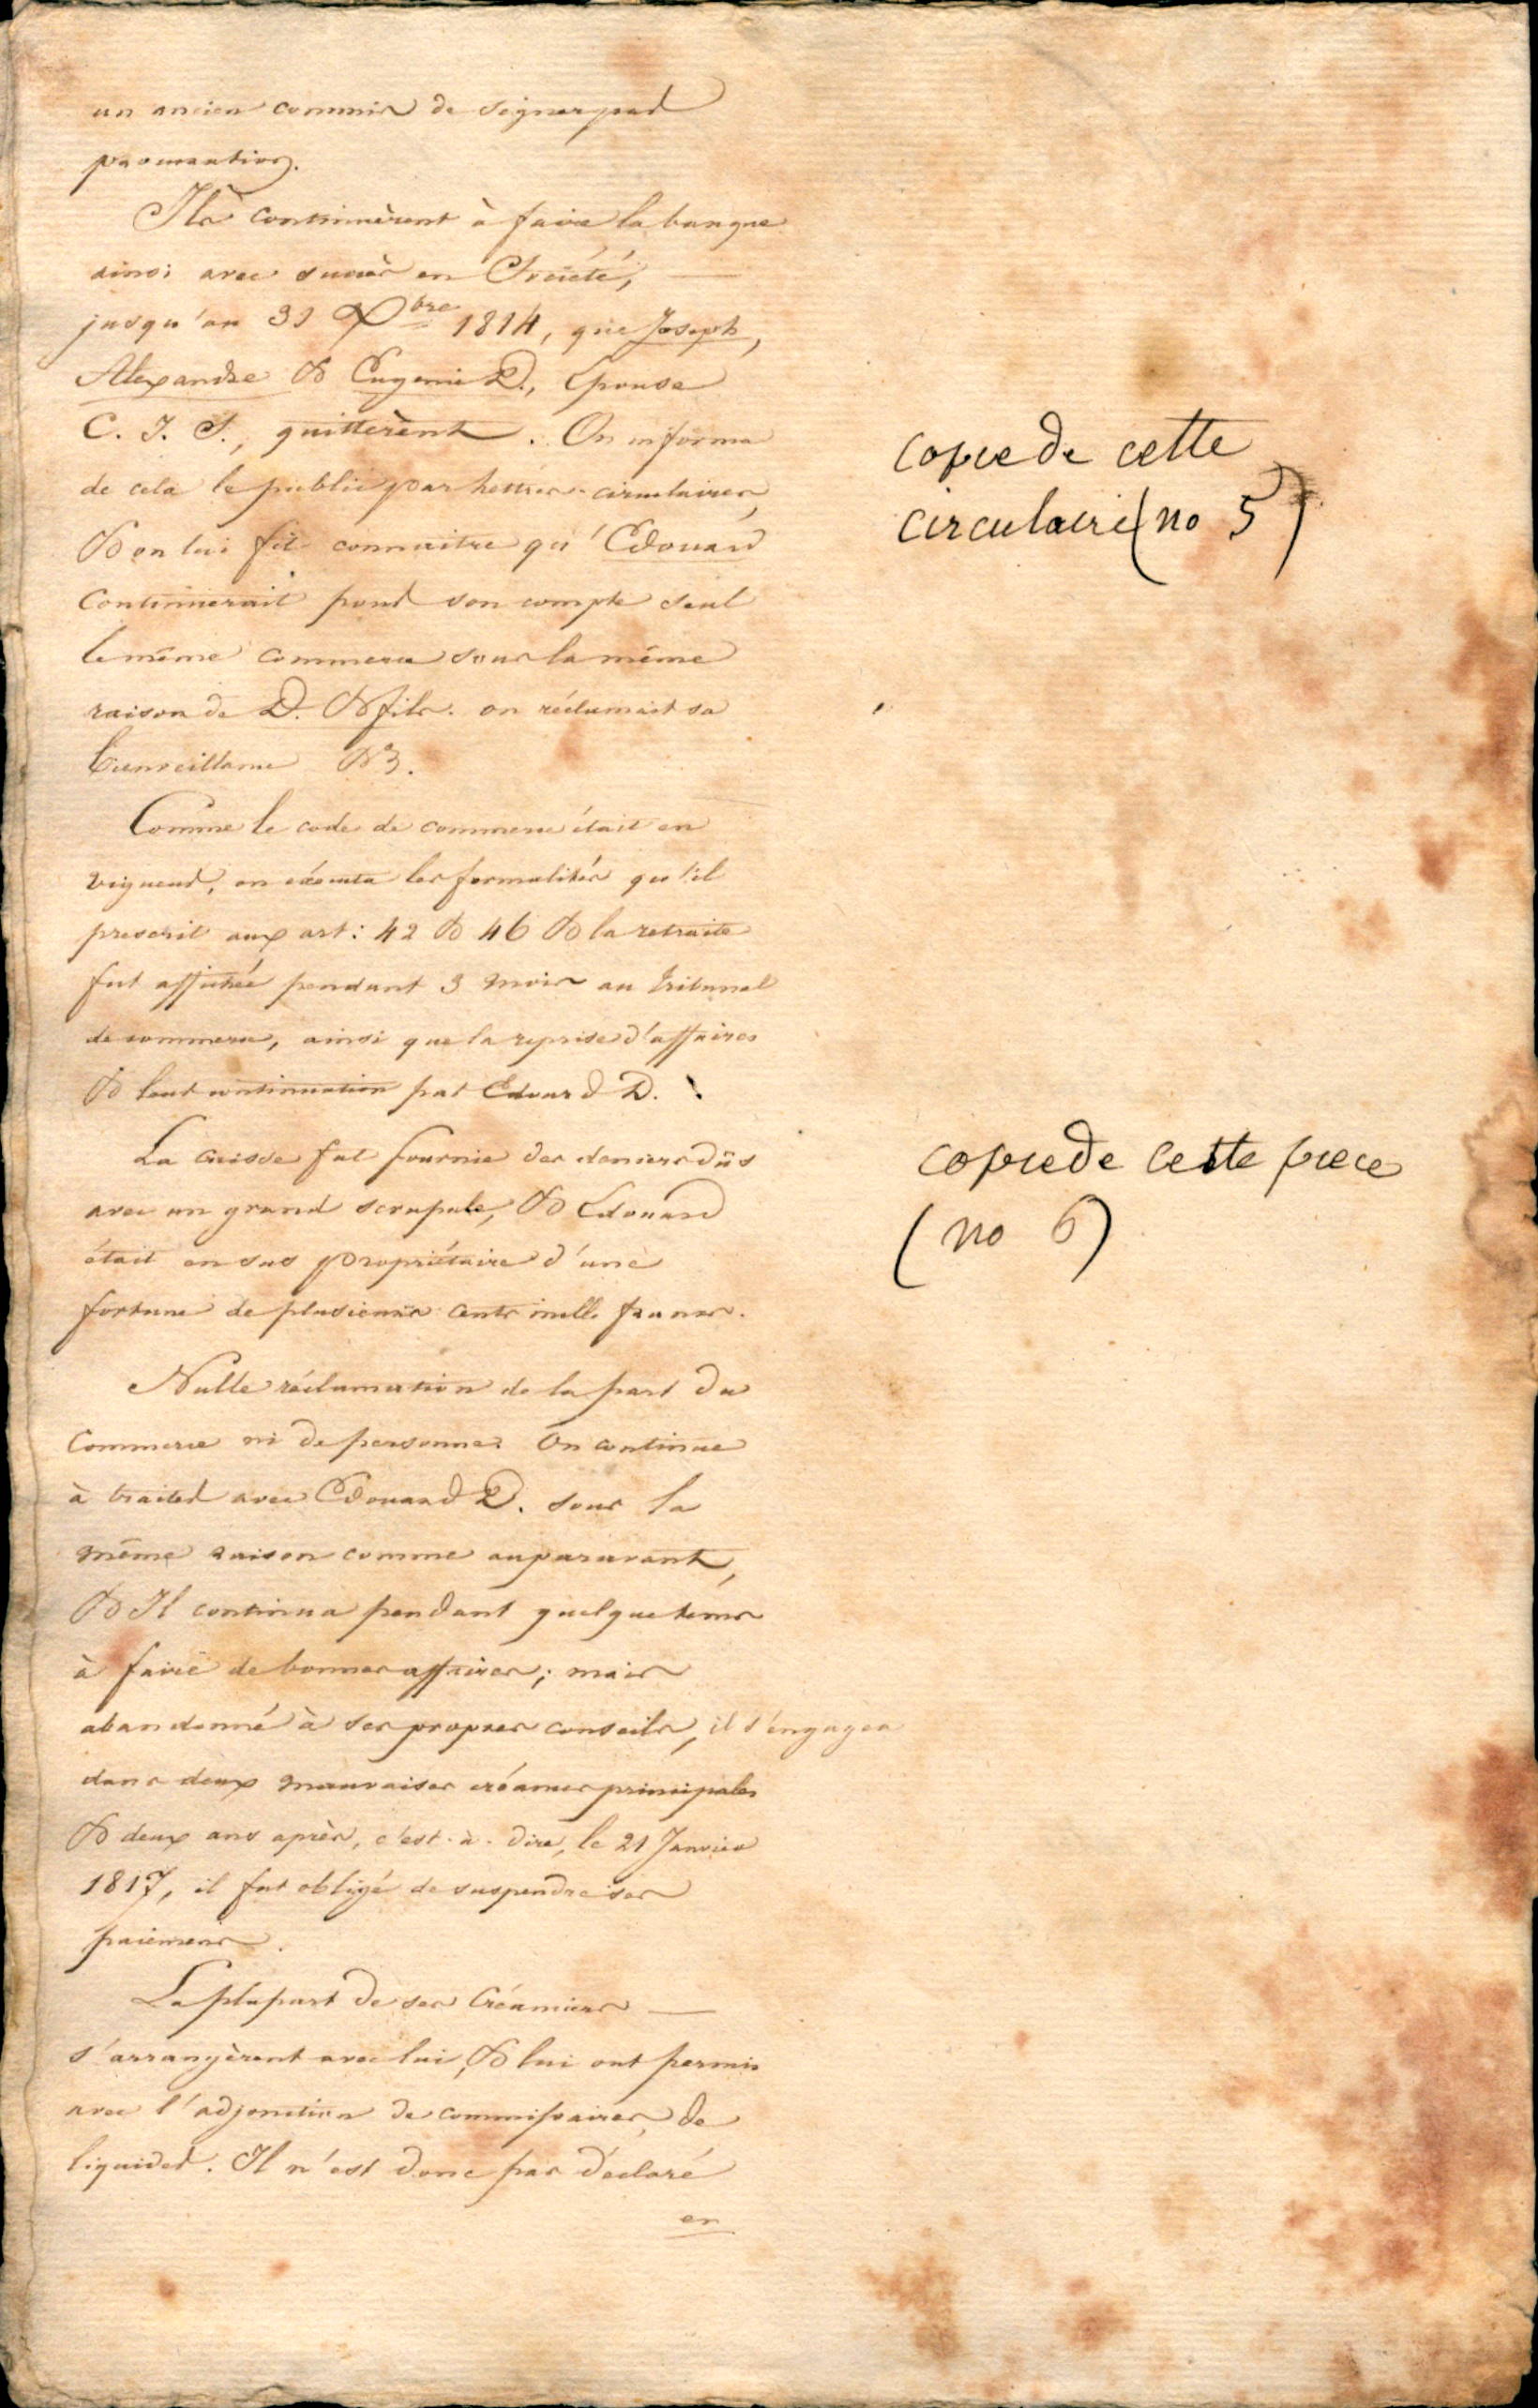 un ancien commis de signer par
procuration.
Ils continuèrent à faire la banque
ainsi avec succès en Société,
jusqu'au 31 Xbre 1814, que Joseph,
Alexandre & Eugenie D., Epouse
C. J. S., quittèrent. On informa
de cela le public par lettres circulaires,
& on lui fit connaitre qu'Edouard
Continuerait pour son compte seul
le même commerce sous la même
raison de D. & fils. on réclamait sa
bienveillance &3.
Comme le code de commerce était en
vigueur, on exécuta les formalités qu'il
prescrit aux art: 42 & 46 & la retraite
fut affichée pendant 3 mois au tribunal
de commerce, ainsi que la reprise d'affaires
& leur continuation par Edouard D.
La caisse fut fournie des deniers dûs
avec un grand scrupule, & Edouard
était en sus propriétaire d'une
fortune de plusieurs cents mille francs.
Nulle réclamation de la part du
Commerce ni de personne. On continue
à traiter avec Edouard D. sous la
même raison comme auparavant,
& Il continua pendant quelque tems
à faire de bonnes affaires; mais
abandonné à ses propres conseils, il s'engagea
dans deux mauvaises créances principales
& deux ans après, c'est-à-dire, le 21 Janvier
1817, il fut obligé de suspendre ses
paiemens.
La plupart de ses Créanciers
s'arrangèrent avec lui, & lui ont permis
avec l'adjonction de commissaires, de
liquider. Il n'est donc pas déclaré
en
copie de cette
circulaire (no 5)
copie de cette piece
(no 6)